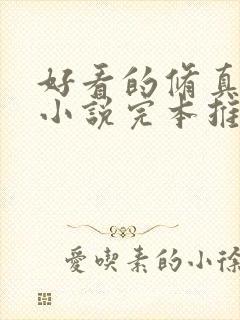 好看的脩真
小說完本推
愛喫素的小徐